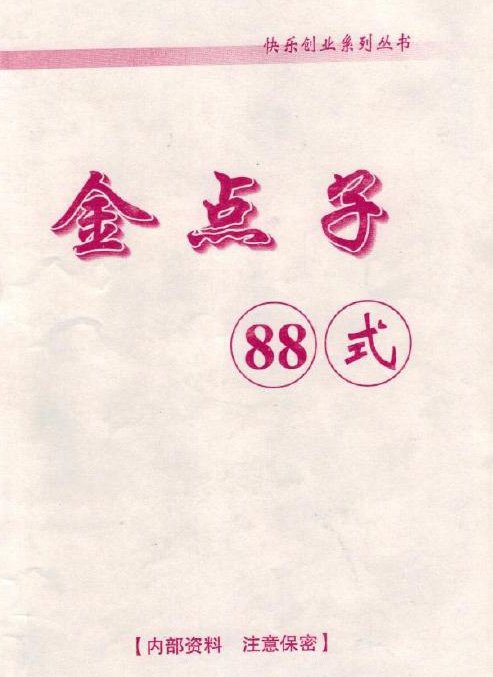 快乐创业系列丛书
金点子
88 式
【内部资料 注意保密】